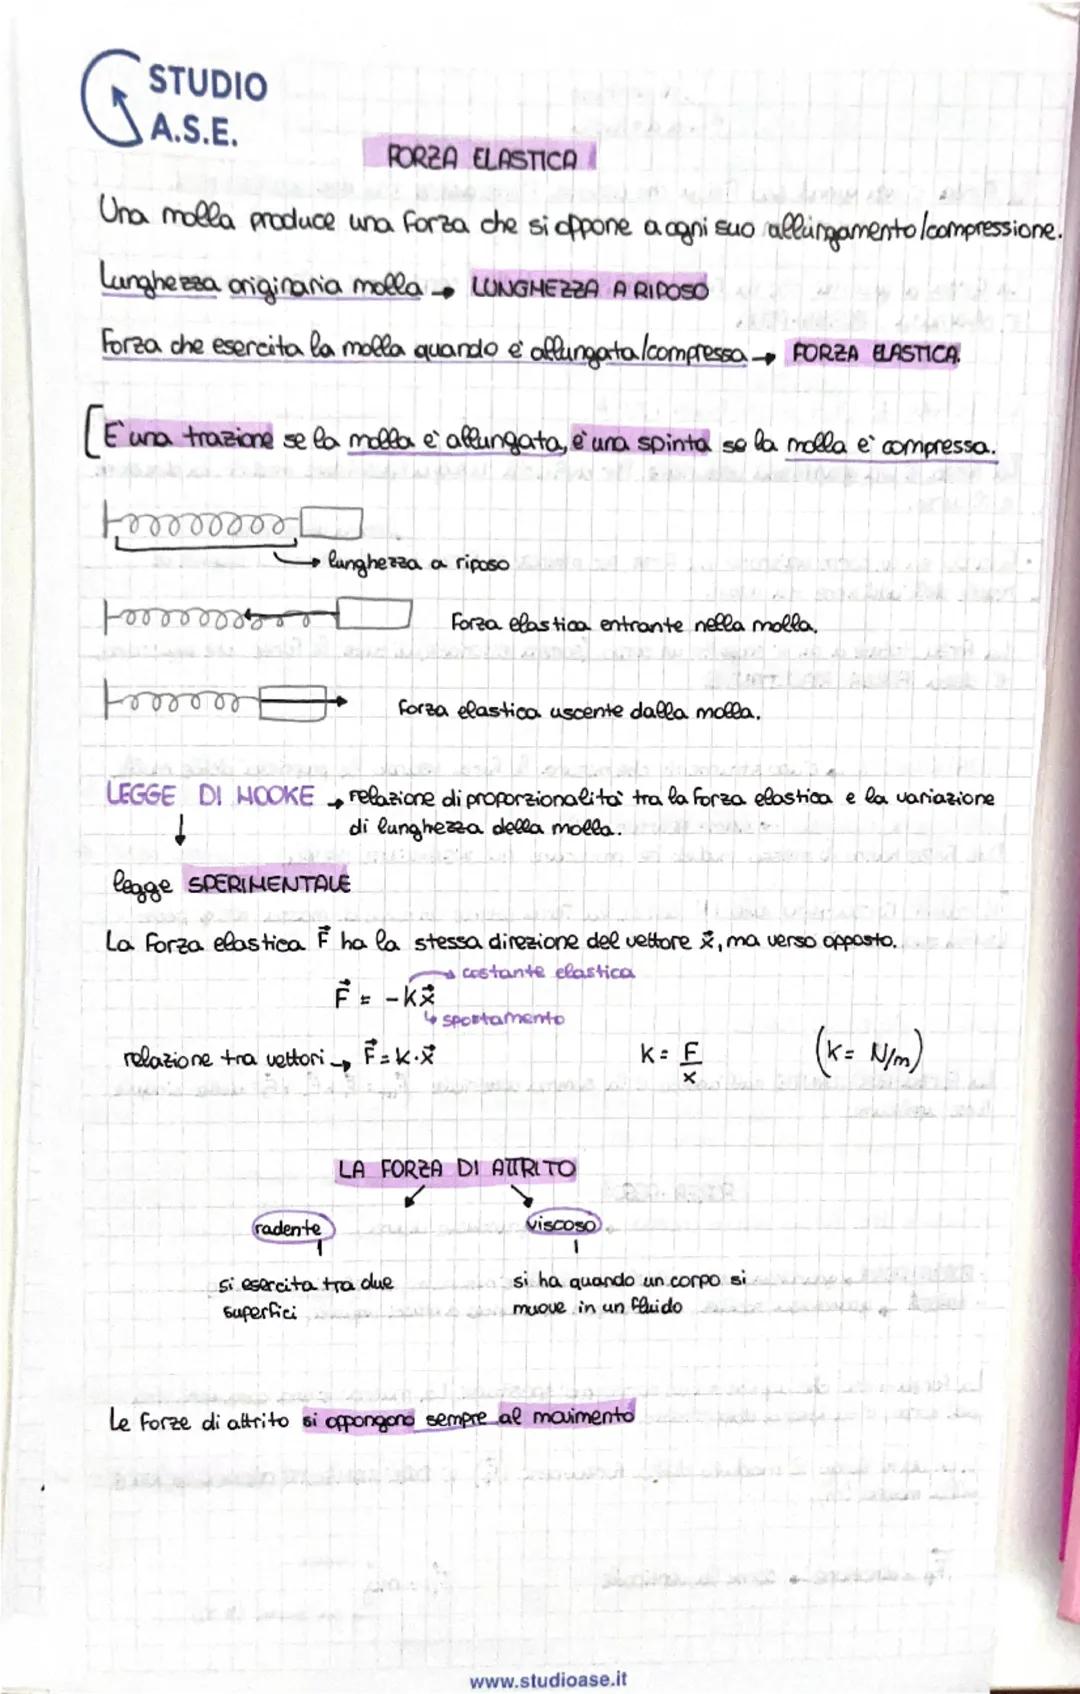 STUDIO
A.S.E.
FORZA ELASTICA
Una molla produce una forza che si oppone a ogni suo allungamento/compressione.
Lunghezza originaria molla → LUNGHEZZA A RIPOSO
Forza che esercita la molla quando è allungata/compressa → FORZA ELASTICA.
[E' una trazione se la molla e' allungata, e' una spinta se la molla e' compressa.
→ lunghezza a riposo
Forza elastica entrante nella molla.
Forza elastica uscente dalla molla.
LEGGE DI HOOKE → relazione di proporzionalita' tra la forza elastica e la variazione
di lunghezza della molla.
↓
legge SPERIMENTALE
La forza elastica F⃗ ha la stessa direzione del vettore x⃗, ma verso opposto.
→ costante elastica
F⃗ = -kx⃗
↳ spostamento
relazione tra vettori → F⃗ = k·x⃗ k = F/x (k = N/m)
LA FORZA DI ATTRITO
radente viscoso
si esercita tra due si ha quando un corpo si
superfici muove in un fluido
Le forze di attrito si oppongono sempre al movimento
www.studioase.it